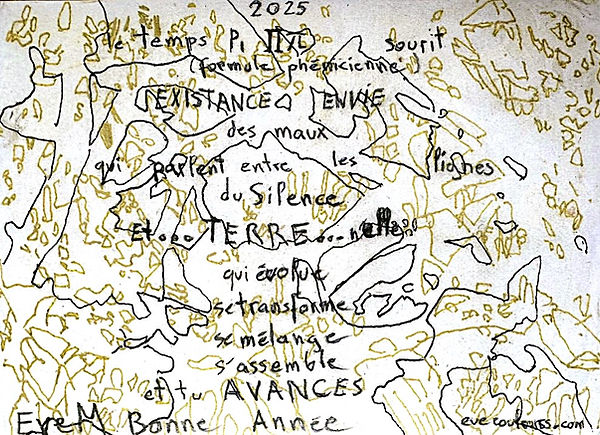 2025
le temps Pi IIXL sourit
(formule phénicienne)
EXISTANCE ENVIE
des maux
qui parlent entre les lignes
du Silence
Et... TERRE...nelle
qui évolue
se transforme
se mélange
s'assemble
et tu AVANCES
EveM Bonne Année